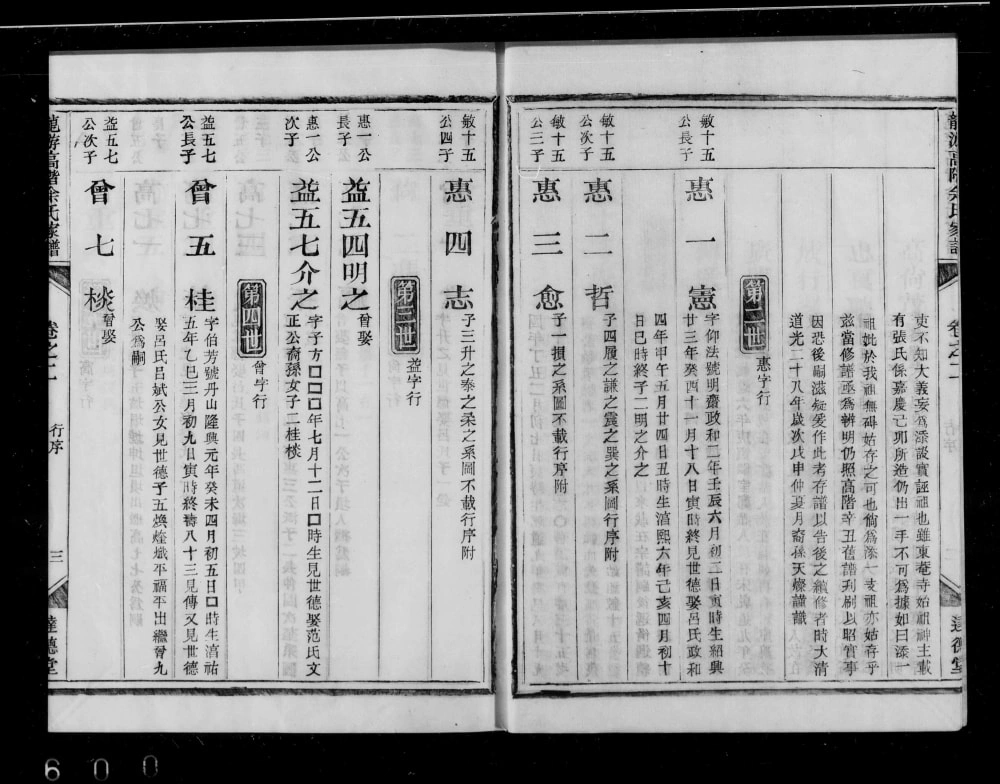 龍游高階余氏家譜
卷之二
行序
達德堂
吏不知大義妄爲添談實誣祖也雖東菴寺始祖神主載
有張氏係嘉慶己卯所造仍出一手不可爲據如曰添一
祖妣於我祖無碍姑存之可也倘爲添一支祖亦姑存乎
玆當修譜亟爲辨明仍照高階辛丑舊譜刋刷以昭實事
因恐後嗣滋疑爰作此考存譜以告後之纘修者時大清
道光二十八年歲次戊申仲夏月裔孫天燦謹識
第二世 惠字行
敏十五公長子
惠一憲
字仰法號明齋政和二年壬辰六月初二日寅時生紹興
廿三年癸酉十一月十八日寅時終見世德娶呂氏政和
四年甲午五月廿四日丑時生淳熙六年己亥四月初十
日巳時終子二明之介之
敏十五公次子
惠二哲
子四履之謙之震之巽之系圖不載行序附
敏十五公三子
惠三愈
子一損之系圖不載行序附
敏十五公四子
惠四志
子三升之泰之柔之系圖不載行序附
第三世 益字行
惠一公長子
益五四明之
曾娶
惠一公次子
益五七介之
字子方□□□年七月十二日□時生見世德娶范氏文
正公裔孫女子二桂棪
第四世 曾字行
益五七公長子
曾五桂
字伯芳號丹山隆興元年癸未四月初五日□時生淳祐
五年乙巳三月初九日寅時終壽八十三見傳又見世德
娶呂氏呂斌公女見世德子五煥烇熾平福平出繼曾九
公爲嗣
益五七公次子
曾七棪
曾娶
龍游高階余氏家譜
卷之二
行序
三
達德堂
600